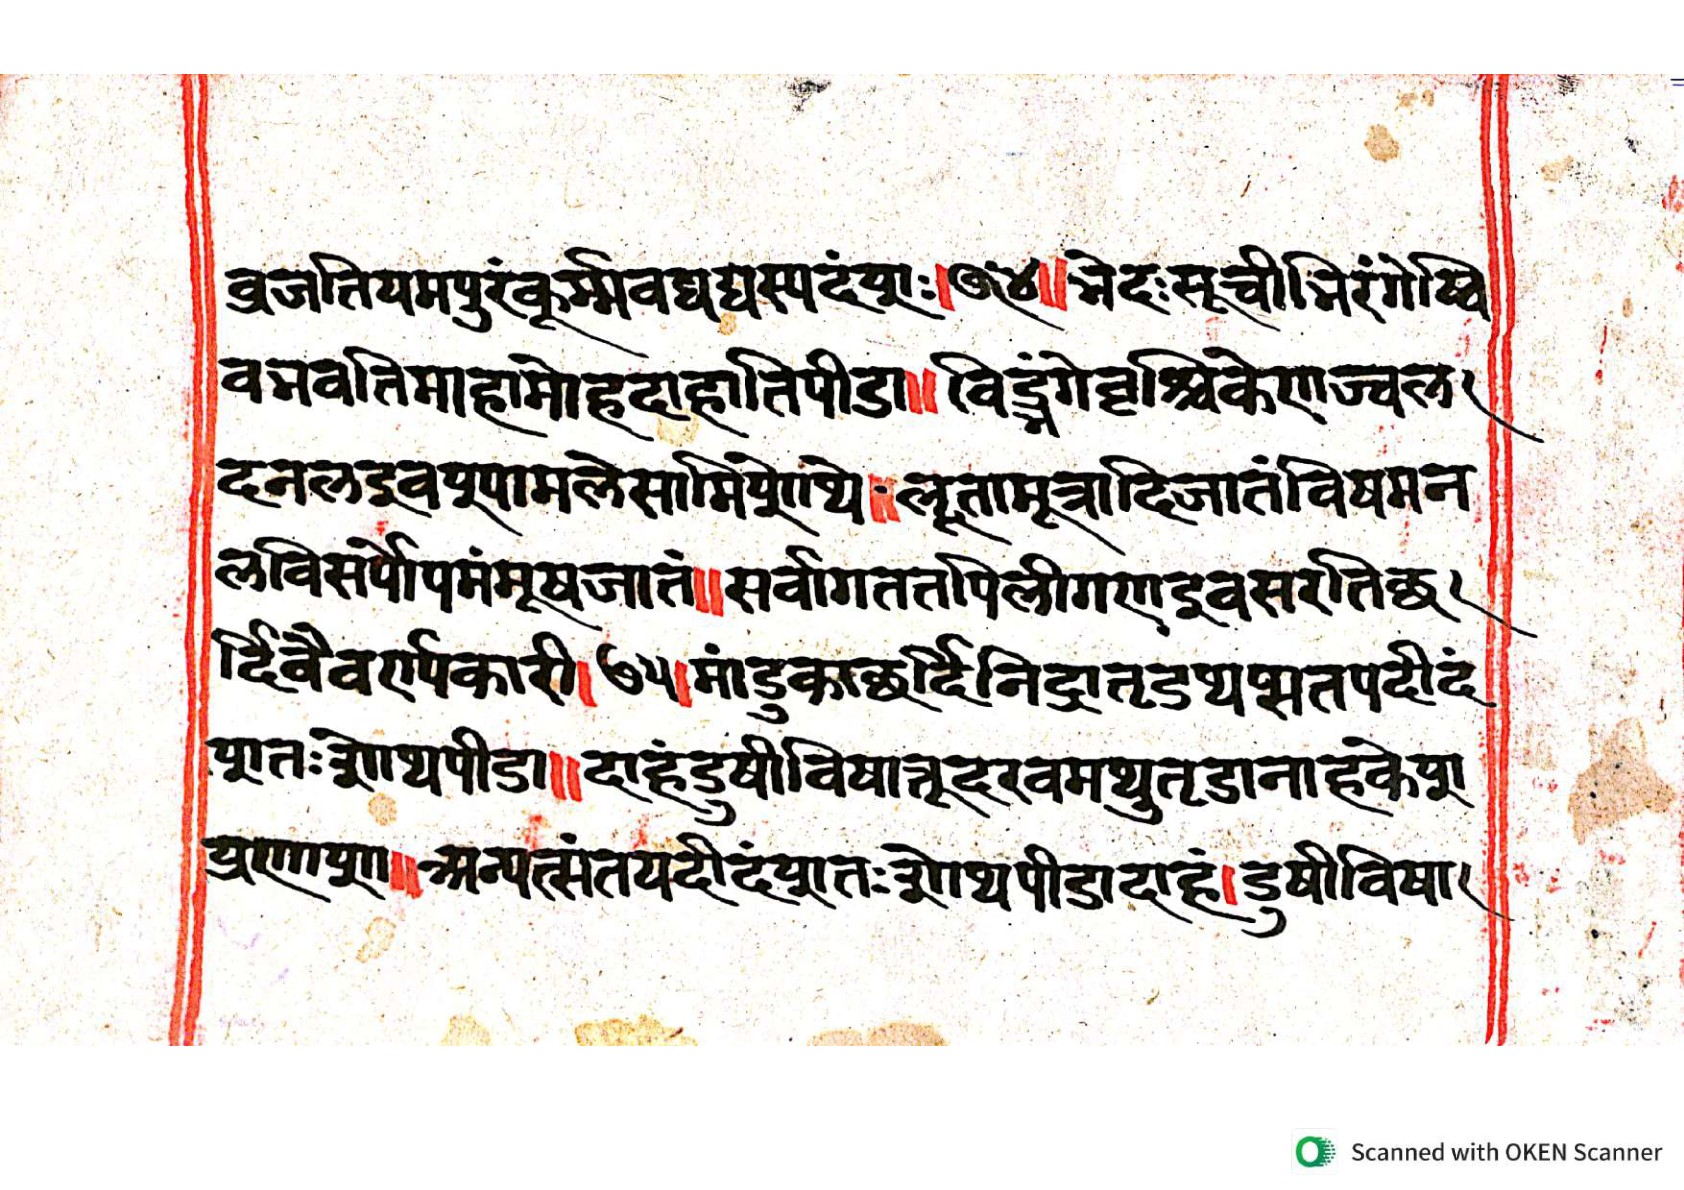 व्रजतियमपुरंकूर्म्मवद्यद्यस्पदंशः।७४॥भेदःसूचीभिरंगेष्वि
वभवतिमाहामोहदाहातिपीडा॥विड्भंगेवृश्चिकेणज्वल
दनलइवपुपामलेसामिशोथे॥लूतामूत्रादिजातंविषमन
लविसर्पोपमंमूषजातं॥सर्वागतत्तपिलीगणइवसरतिछ
र्दिवैवर्ण्यकारी।७५।मांडुकाछर्दिनिद्रातृडथप्मतपदीदं
शतःशोथपीडा॥दाहंडुषीविषान्नृदरवमथुतृडानाहकेशा
प्रणाशा॥अन्यत्संतयदीदंशतःशोथपीडादाहं।डुषीविषा
Scanned with OKEN Scanner